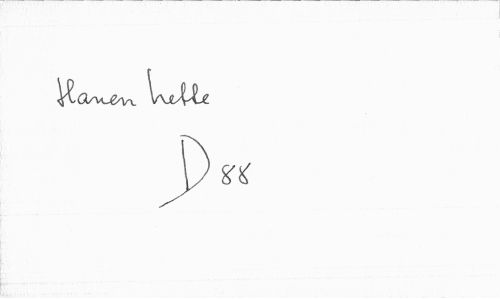 Hanen helle
D 88